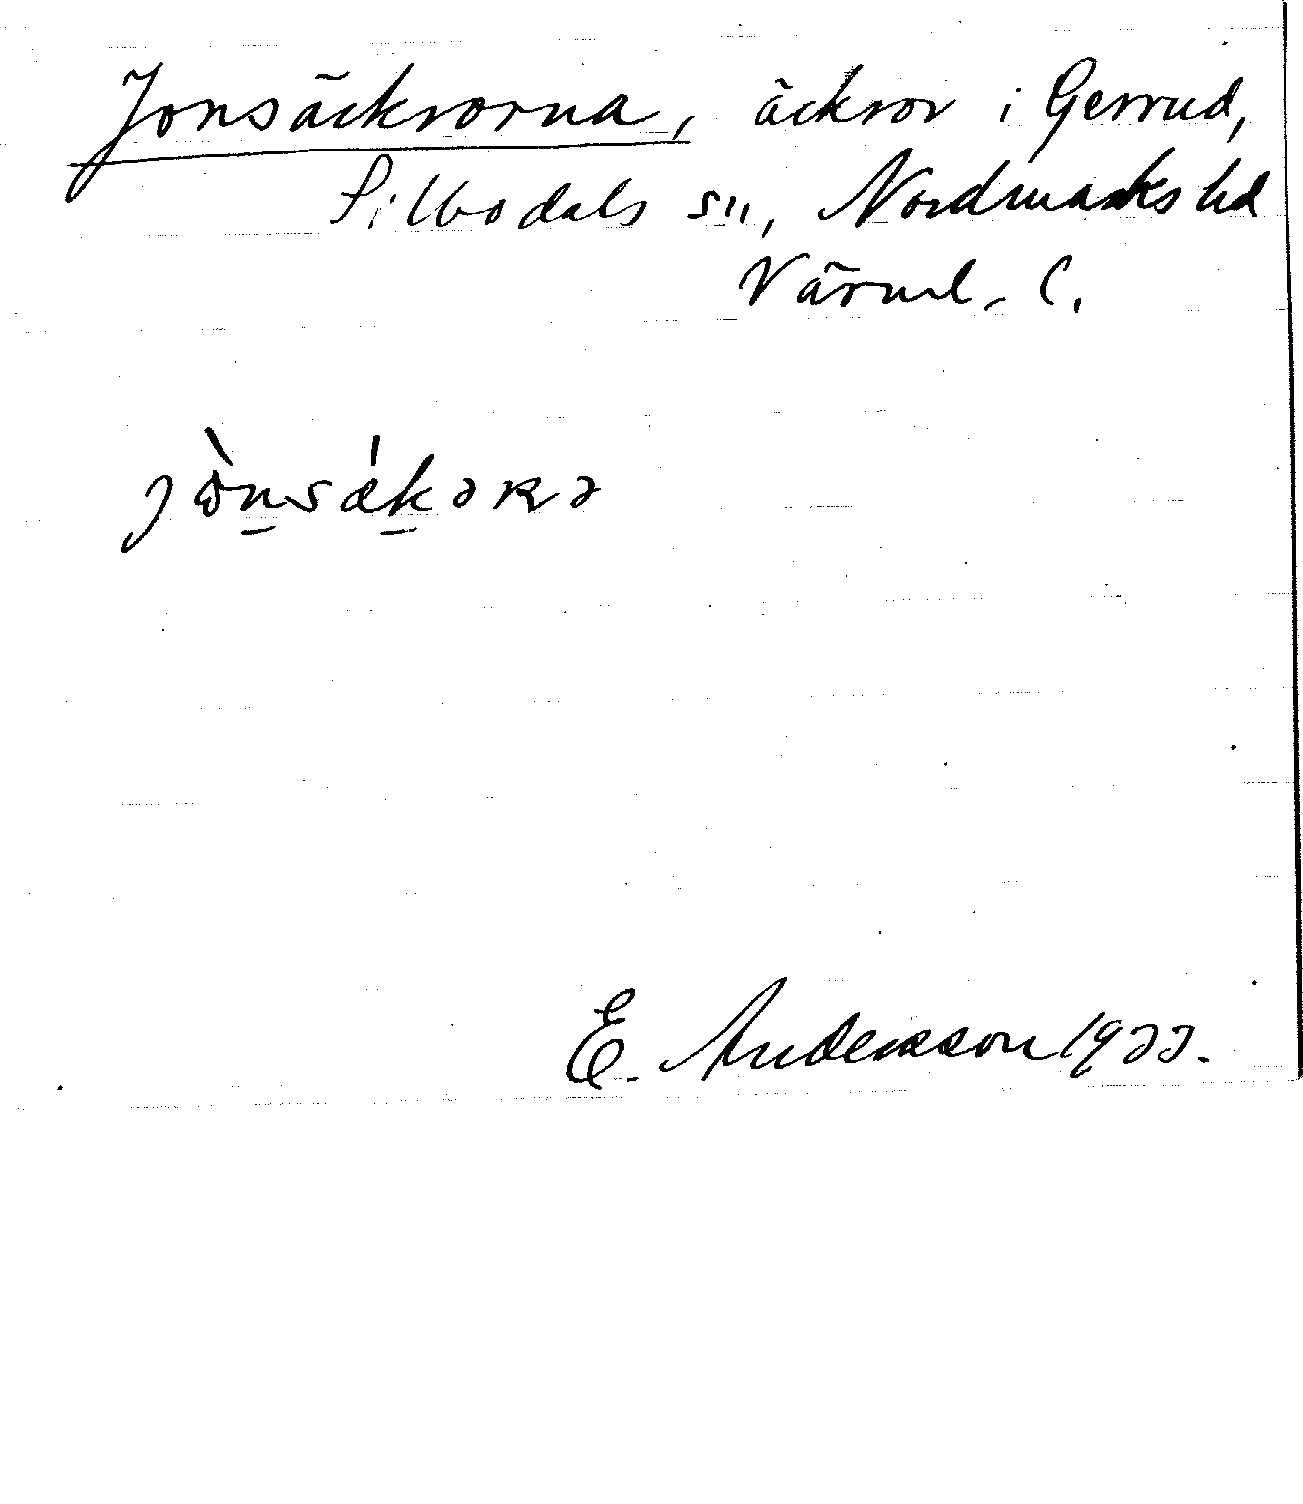 Jonsäckrorna, äckror i Gerrud,
Silbodals sn, Nordmarks hd
Värml. l.
jònsǽkərə
E. Andersson 1933.